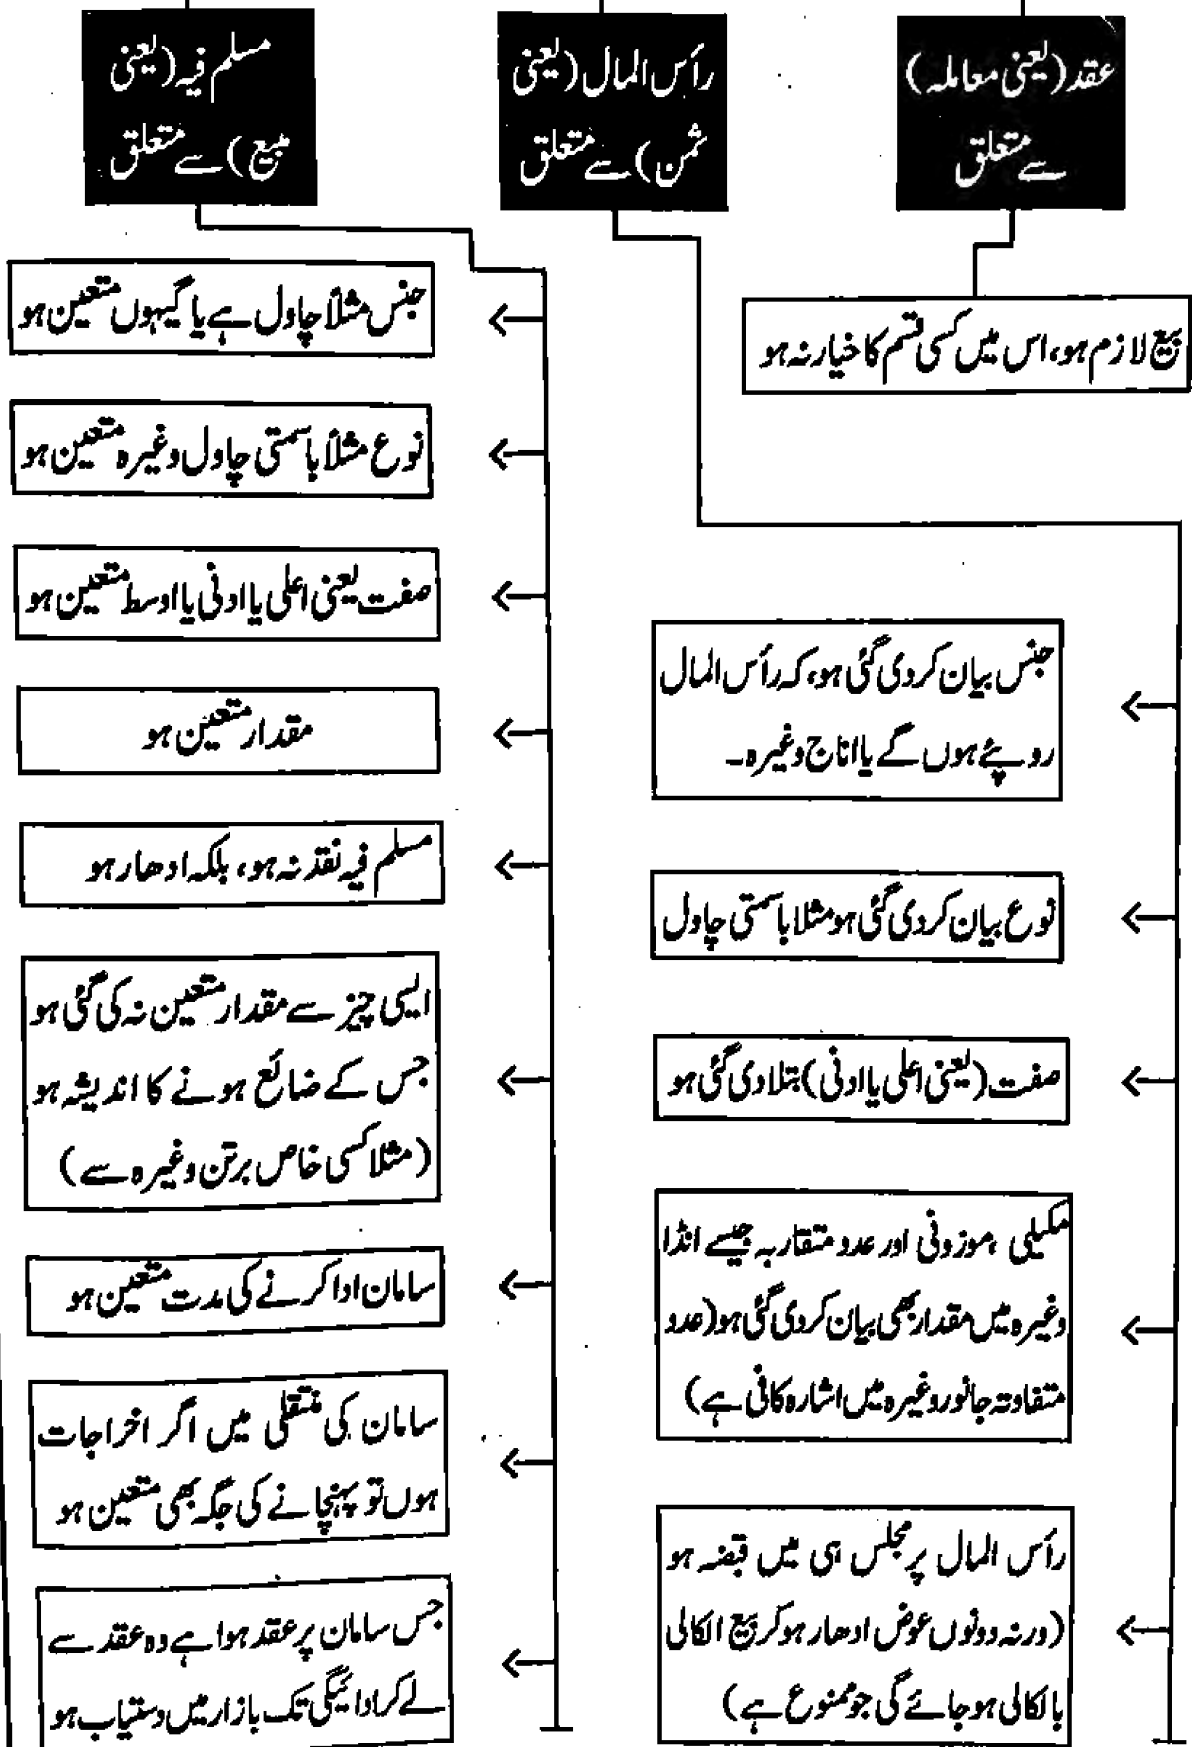 عقد (یعنی معاملہ)
سے متعلق
رأس المال (یعنی
ثمن) سے متعلق
مسلم فیہ (یعنی
مبیع) سے متعلق
بیع لازم ہو، اس میں کسی قسم کا خیار نہ ہو
جنس بیان کردی گئی ہو، کہ رأس المال
روپئے ہوں گے یا اناج وغیرہ۔
نوع بیان کردی گئی ہو مثلا باسمتی چاول
صفت (یعنی اعلی یا ادنی) بتلا دی گئی ہو
مکیلی، موزونی اور عدد متقاربہ جیسے انڈا
وغیرہ میں مقدار بھی بیان کردی گئی ہو (عدد
متفاوتہ جانور وغیرہ میں اشارہ کافی ہے)
رأس المال پر مجلس ہی میں قبضہ ہو
(ورنہ دونوں عوض ادھار ہوکر بیع الکالی
بالکالی ہو جائے گی جو ممنوع ہے)
جنس مثلاً چاول ہے یا گیہوں متعین ہو
نوع مثلاً باسمتی چاول وغیرہ متعین ہو
صفت یعنی اعلی یا ادنی یا اوسط متعین ہو
مقدار متعین ہو
مسلم فیہ نقد نہ ہو، بلکہ ادھار ہو
ایسی چیز سے مقدار متعین نہ کی گئی ہو
جس کے ضائع ہونے کا اندیشہ ہو
(مثلا کسی خاص برتن وغیرہ سے)
سامان ادا کرنے کی مدت متعین ہو
سامان کی منتقلی میں اگر اخراجات
ہوں تو پہنچانے کی جگہ بھی متعین ہو
جس سامان پر عقد ہوا ہے وہ عقد سے
لے کر ادائیگی تک بازار میں دستیاب ہو